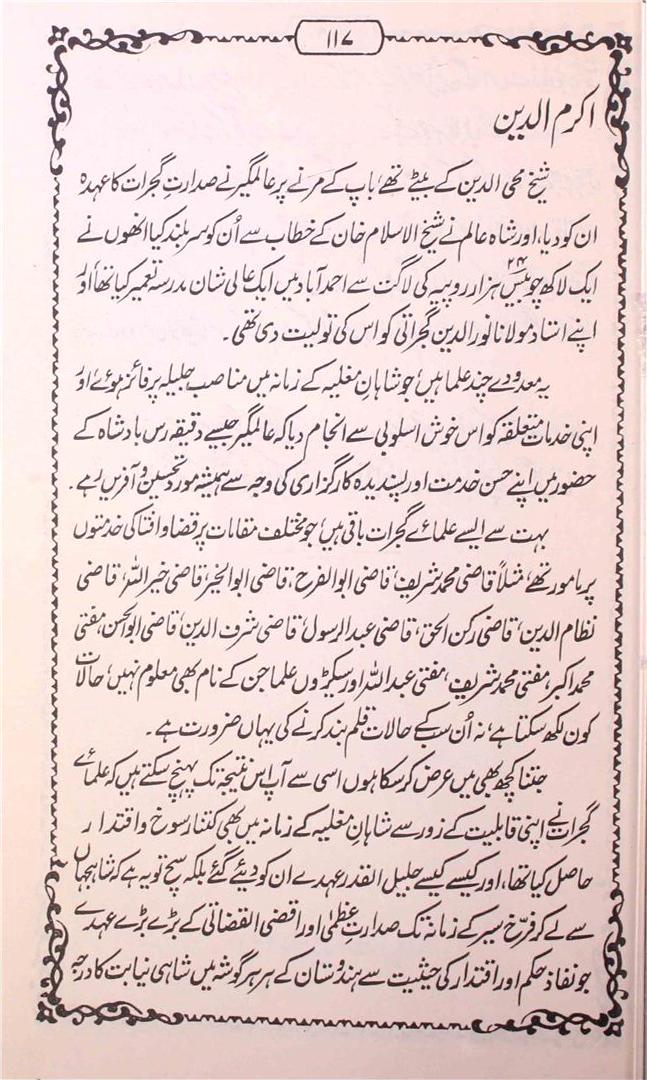 ۱۱۷
اکرم الدین
شیخ محی الدین کے بیٹے تھے، باپ کے مرنے پر عالمگیر نے صدارتِ گجرات کا عہدہ
ان کو دیا، اور شاہ عالم نے شیخ الاسلام خان کے خطاب سے اُن کو سر بلند کیا انھوں نے
ایک لاکھ چوبیس ۲۴ ہزار روپیہ کی لاگت سے احمد آباد میں ایک عالی شان مدرسہ تعمیر کیا تھا، اور
اپنے استاد مولانا نور الدین گجراتی کو اس کی تولیت دی تھی۔
یہ معدودے چند علما ہیں، جو شاہانِ مغلیہ کے زمانہ میں مناصب جلیلہ پر فائز ہوئے، اور
اپنی خدمات متعلقہ کو اس خوش اسلوبی سے انجام دیا کہ عالمگیر جیسے دقیقہ رس بادشاہ کے
حضور میں اپنے حسن خدمت اور پسندیدہ کارگزاری کی وجہ سے ہمیشہ مورد تحسین و آفریں رہے۔
بہت سے ایسے علمائے گجرات باقی ہیں، جو مختلف مقامات پر قضا و افتا کی خدمتوں
پر مامور تھے، مثلاً قاضی محمد شریف، قاضی ابو الفرح، قاضی ابو الخیر، قاضی خیر اللہ، قاضی
نظام الدین، قاضی رکن الحق، قاضی عبد الرسول، قاضی شرف الدین، قاضی ابو الحسن، مفتی
محمد اکبر، مفتی محمد شریف، مفتی عبد اللہ اور سیکڑوں علما جن کے نام بھی معلوم نہیں، حالات
کون لکھ سکتا ہے، نہ اُن سب کے حالات قلم بند کرنے کی یہاں ضرورت ہے۔
جتنا کچھ بھی میں عرض کر سکا ہوں اسی سے آپ اس نتیجہ تک پہنچ سکتے ہیں کہ علمائے
گجرات نے اپنی قابلیت کے زور سے شاہانِ مغلیہ کے زمانہ میں بھی کتنا رسوخ و اقتدار
حاصل کیا تھا، اور کیسے کیسے جلیل القدر عہدے ان کو دیئے گئے بلکہ سچ تو یہ ہے کہ شاہجہاں
سے لے کر فرّخ سیر کے زمانہ تک صدارتِ عظمیٰ اور اقضی القضاتی کے بڑے بڑے عہدے
جو نفاذ حکم اور اقتدار کی حیثیت سے ہندوستان کے ہر ہر گوشہ میں شاہی نیابت کا درجہ